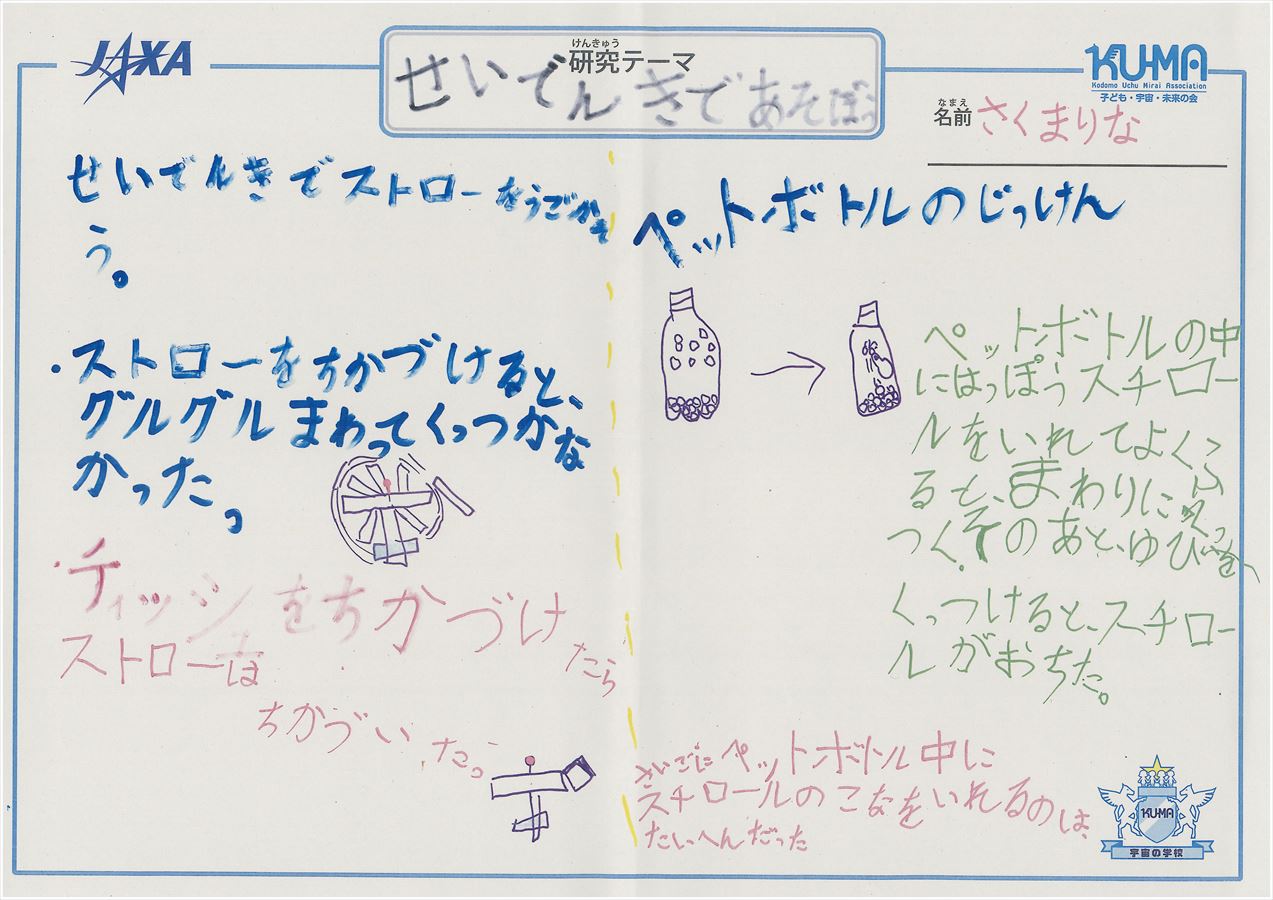 JAXA
けんきゅう
研究テーマ
せいでんきであそぼう
KU-MA
Kodomo Uchu Mirai Association
子ども・宇宙・未来の会
なまえ
名前 さくまりな
せいでんきでストローをうごかそ
う。
・ストローをちかづけると、
グルグルまわってくっつかな
かった。
・ティッシュをちかづけたら
ストローは
ちかづいたっ
ペットボトルのじっけん
ペットボトルの中
にはっぽうスチロー
ルをいれてよくふ
ると、まわりにくっ
つく。そのあと、ゆびを
くっつけると、スチロー
ルがおちた。
さいごにペットボトル中に
スチロールのこなをいれるのは、
たいへんだった
KU-MA
宇宙の学校